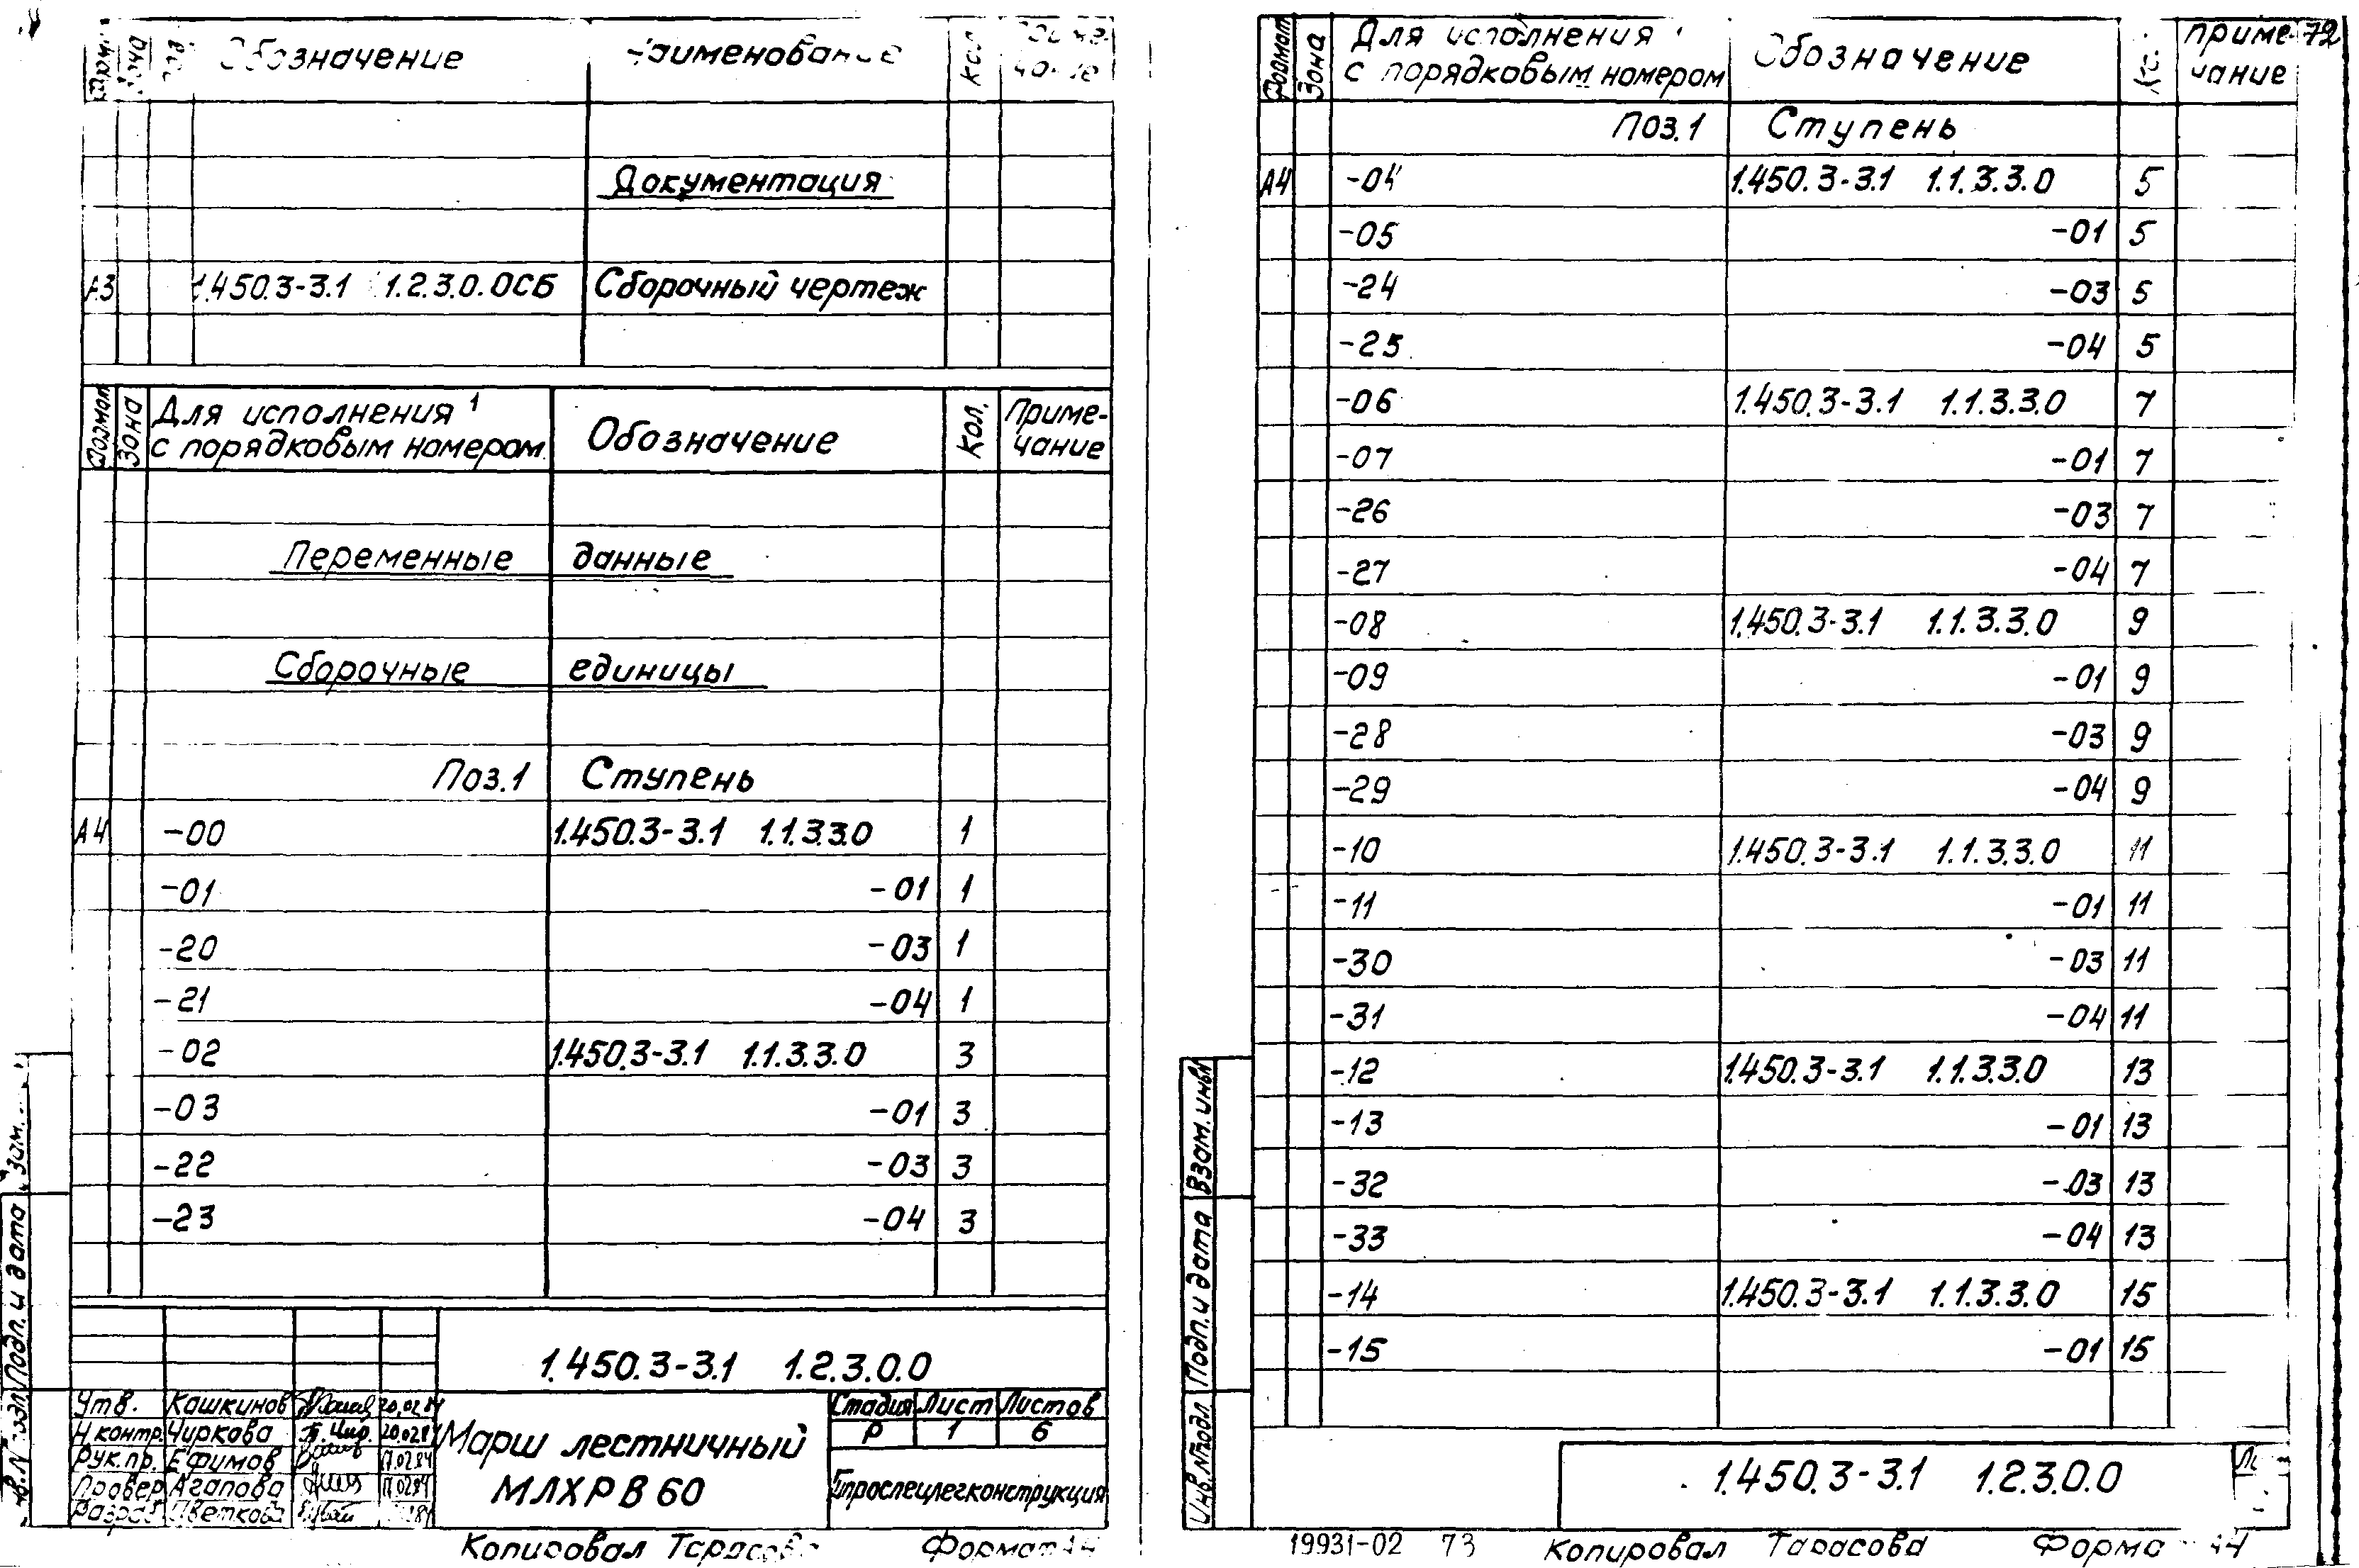 Обозначение Наименование Кол
Документация
А3 1.450.3-3.1 1.2.3.0.0СБ Сборочный чертеж
Формат Зона Для исполнения с порядковым номером 1 Обозначение Кол. Примечание
Переменные данные
Сборочные единицы
Поз.1 Ступень
А4 -00 1.450.3-3.1 1.1.3.3.0 1
-01 -01 1
-20 -03 1
-21 -04 1
-02 1.450.3-3.1 1.1.3.3.0 3
-03 -01 3
-22 -03 3
-23 -04 3
1.450.3-3.1 1.2.3.0.0
Утв. Кашкинов 20.02.84
Н контр. Чиркова 20.02.84
Рук.пр. Ефимов 17.02.84
Провер Агапова 17.02.84
Разраб Цветкова
Марш лестничный
МЛХРВ60
Стадия Лист Листов
Р 1 6
Гипроспецлегконструкция
Подп. и дата
Копировал Тарасова Формат А4
Формат Зона Для исполнения с порядковым номером Обозначение Примечание 72
Поз.1 Ступень
А4 -04 1.450.3-3.1 1.1.3.3.0 5
-05 -01 5
-24 -03 5
-25 -04 5
-06 1.450.3-3.1 1.1.3.3.0 7
-07 -01 7
-26 -03 7
-27 -04 7
-08 1.450.3-3.1 1.1.3.3.0 9
-09 -01 9
-28 -03 9
-29 -04 9
-10 1.450.3-3.1 1.1.3.3.0 11
-11 -01 11
-30 -03 11
-31 -04 11
-12 1.450.3-3.1 1.1.3.3.0 13
-13 -01 13
-32 -03 13
-33 -04 13
-14 1.450.3-3.1 1.1.3.3.0 15
-15 -01 15
Инв.№подл Подп. и дата Взам. инв№
1.450.3-3.1 1.2.3.0.0
19931-02 73 Копировал Тарасова Форма А4